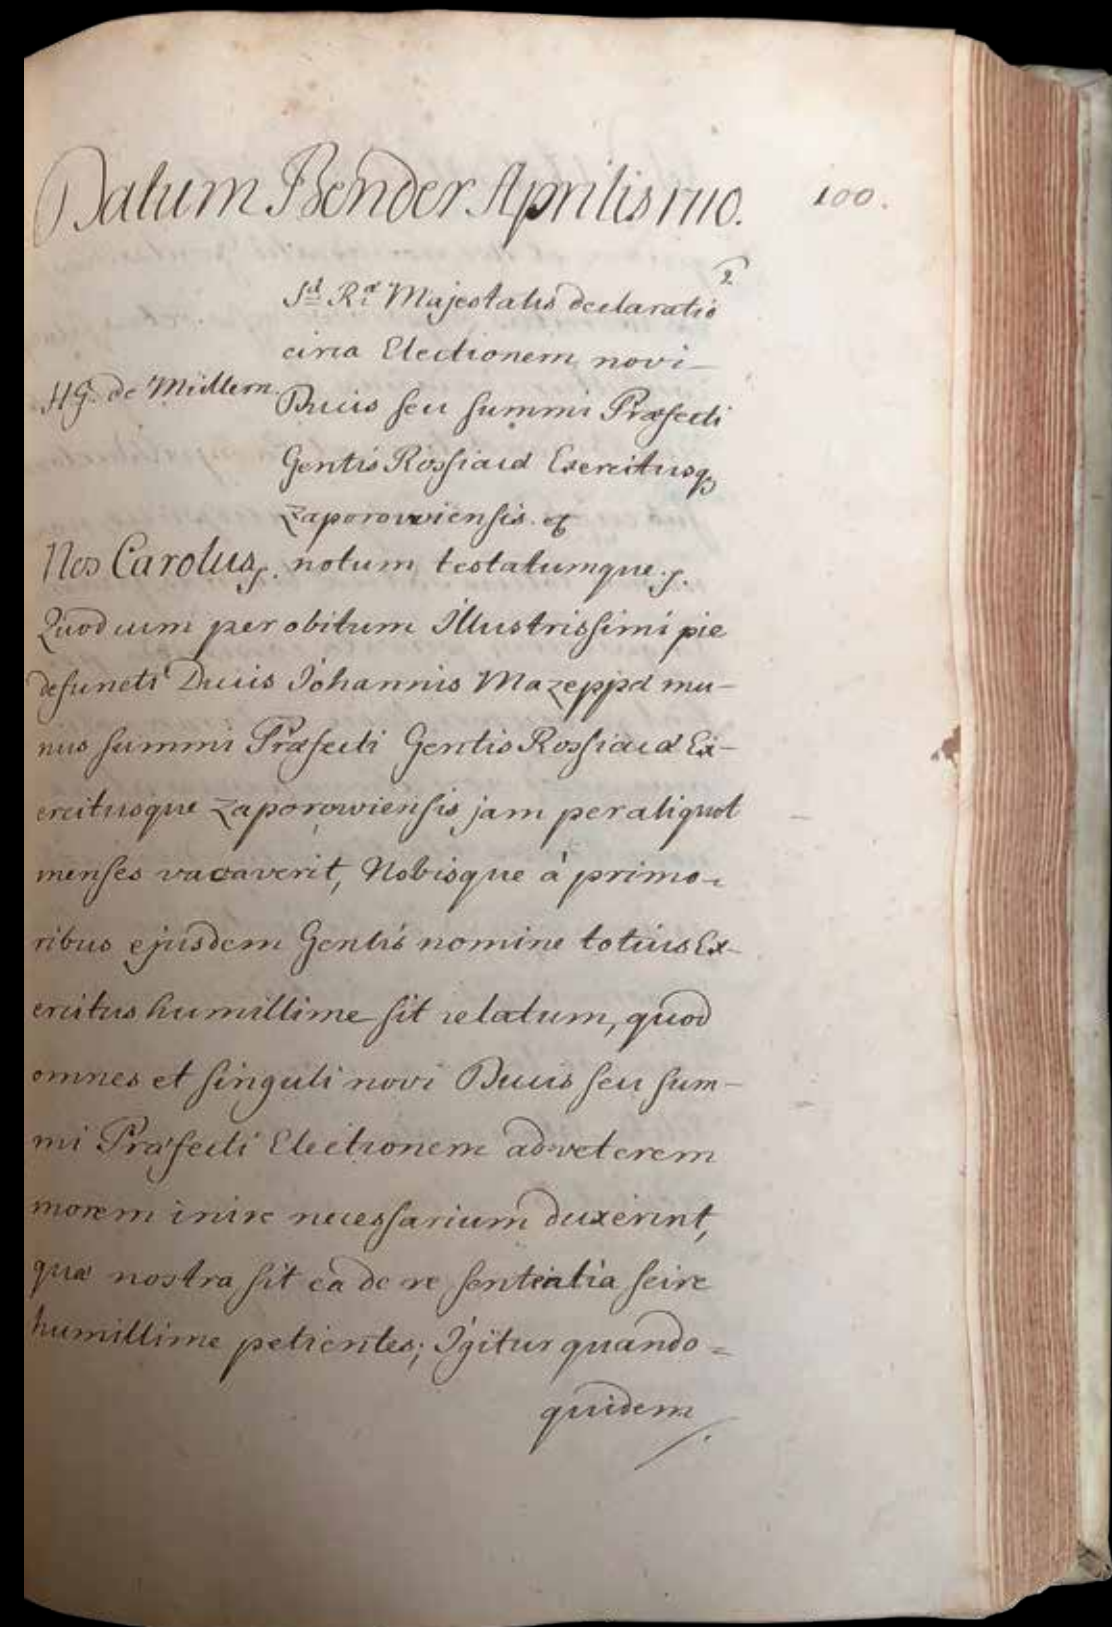 Datum Bender Aprilis 1710.
100.
2
Sæ Ræ Majestatis declaratio
circa Electionem novi
HG. de Müllern.
Ducis seu summi Præfecti
Gentis Rossiacæ Exercitusq
Zaporowiensis.
Nos Carolus notum testatumque
Quod cum per obitum Illustrissimi pie
defuncti Ducis Johannis Mazeppæ mu-
nus summi Præfecti Gentis Rossiacæ Ex-
ercitusque Zaporowiensis jam per aliquot
menses vacaverit, Nobisque à primo-
ribus ejusdem Gentis nomine totius Ex-
ercitus humillime sit relatum, quod
omnes et singuli novi Ducis seu sum-
mi Præfecti Electionem ad veterem
morem inire necessarium duxerint,
quæ nostra sit ea de re sententia scire
humillime petientes; Igitur quando=
quidem